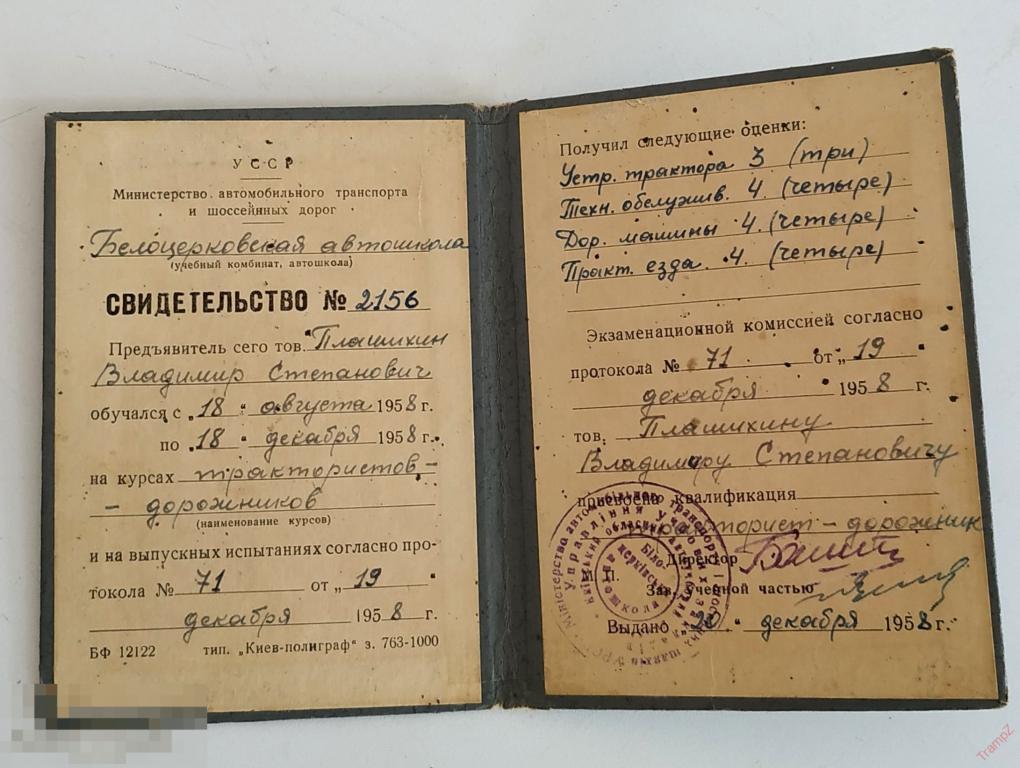 УССР
Министерство автомобильного транспорта
и шоссейных дорог
Белоцерковская автошкола
(учебный комбинат, автошкола)
СВИДЕТЕЛЬСТВО № 2156
Предъявитель сего тов. Плашихин
Владимир Степанович
обучался с „18" августа 1958 г.
по „18" декабря 1958 г.
на курсах трактористов-
- дорожников
(наименование курсов)
и на выпускных испытаниях согласно про-
токола № 71 от „19"
декабря 1958 г.
БФ 12122 тип. „Киев-полиграф" з. 763-1000
Получил следующие оценки:
Устр. трактора 3 (три)
Техн. обслужив. 4 (четыре)
Дор. машины 4 (четыре)
Практ. езда. 4. (четыре)
Экзаменационной комиссией согласно
протокола № 71 от „19"
декабря 1958 г.
тов. Плашихину
Владимиру Степановичу
присвоена квалификация
тракторист-дорожник
М. П. Директор
Зав. учебной частью
Выдано „20" декабря 1958 г.
Міністерство автомобільного транспорту і шосейних шляхів УРСР
Управління учбових
Київський обласний
Біло-
церківська
автошкола
TrampZ